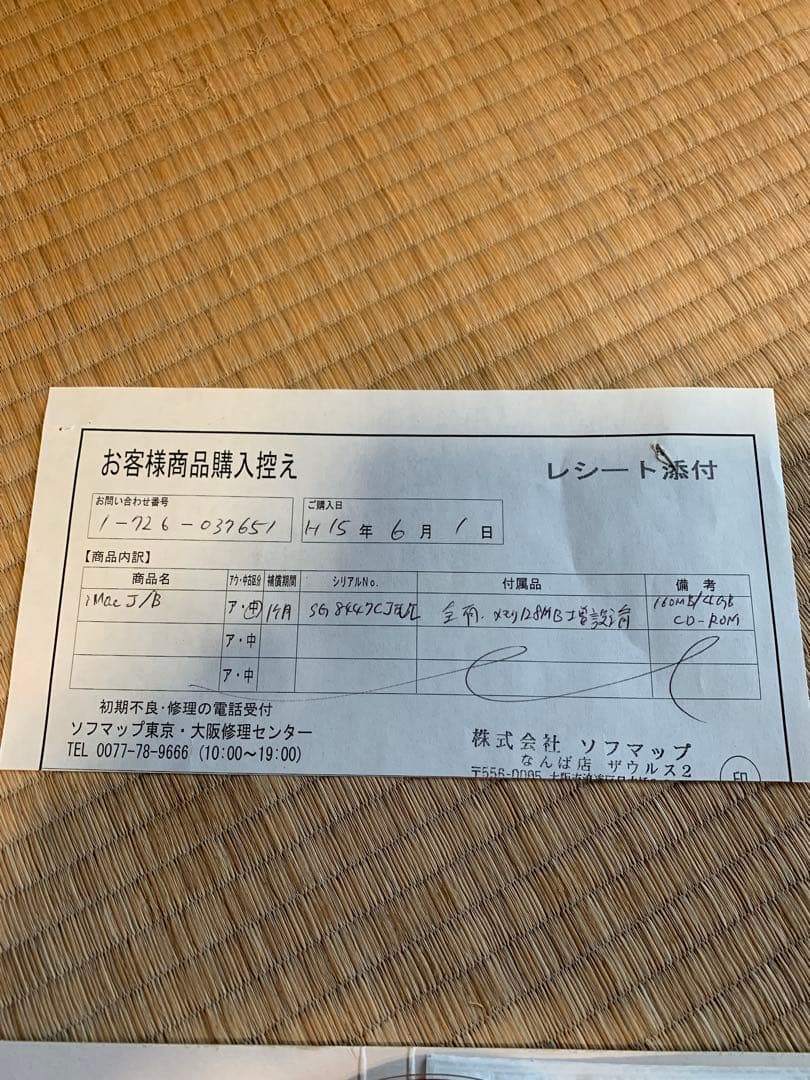 お客様商品購入控え
レシート添付
お問い合わせ番号
1-726-037651
ご購入日
H15年6月1日
【商品内訳】
商品名 アウ・中古区分 補償期間 シリアルNo. 付属品 備考
iMac J/B ア・中 1ヶ月 全有. メモリ128MB増設済 160MB/4GB
CD-ROM
ア・中
ア・中
初期不良・修理の電話受付
ソフマップ東京・大阪修理センター
TEL 0077-78-9666 (10:00〜19:00)
株式会社 ソフマップ
なんば店 ザウルス2
〒556-0005
印